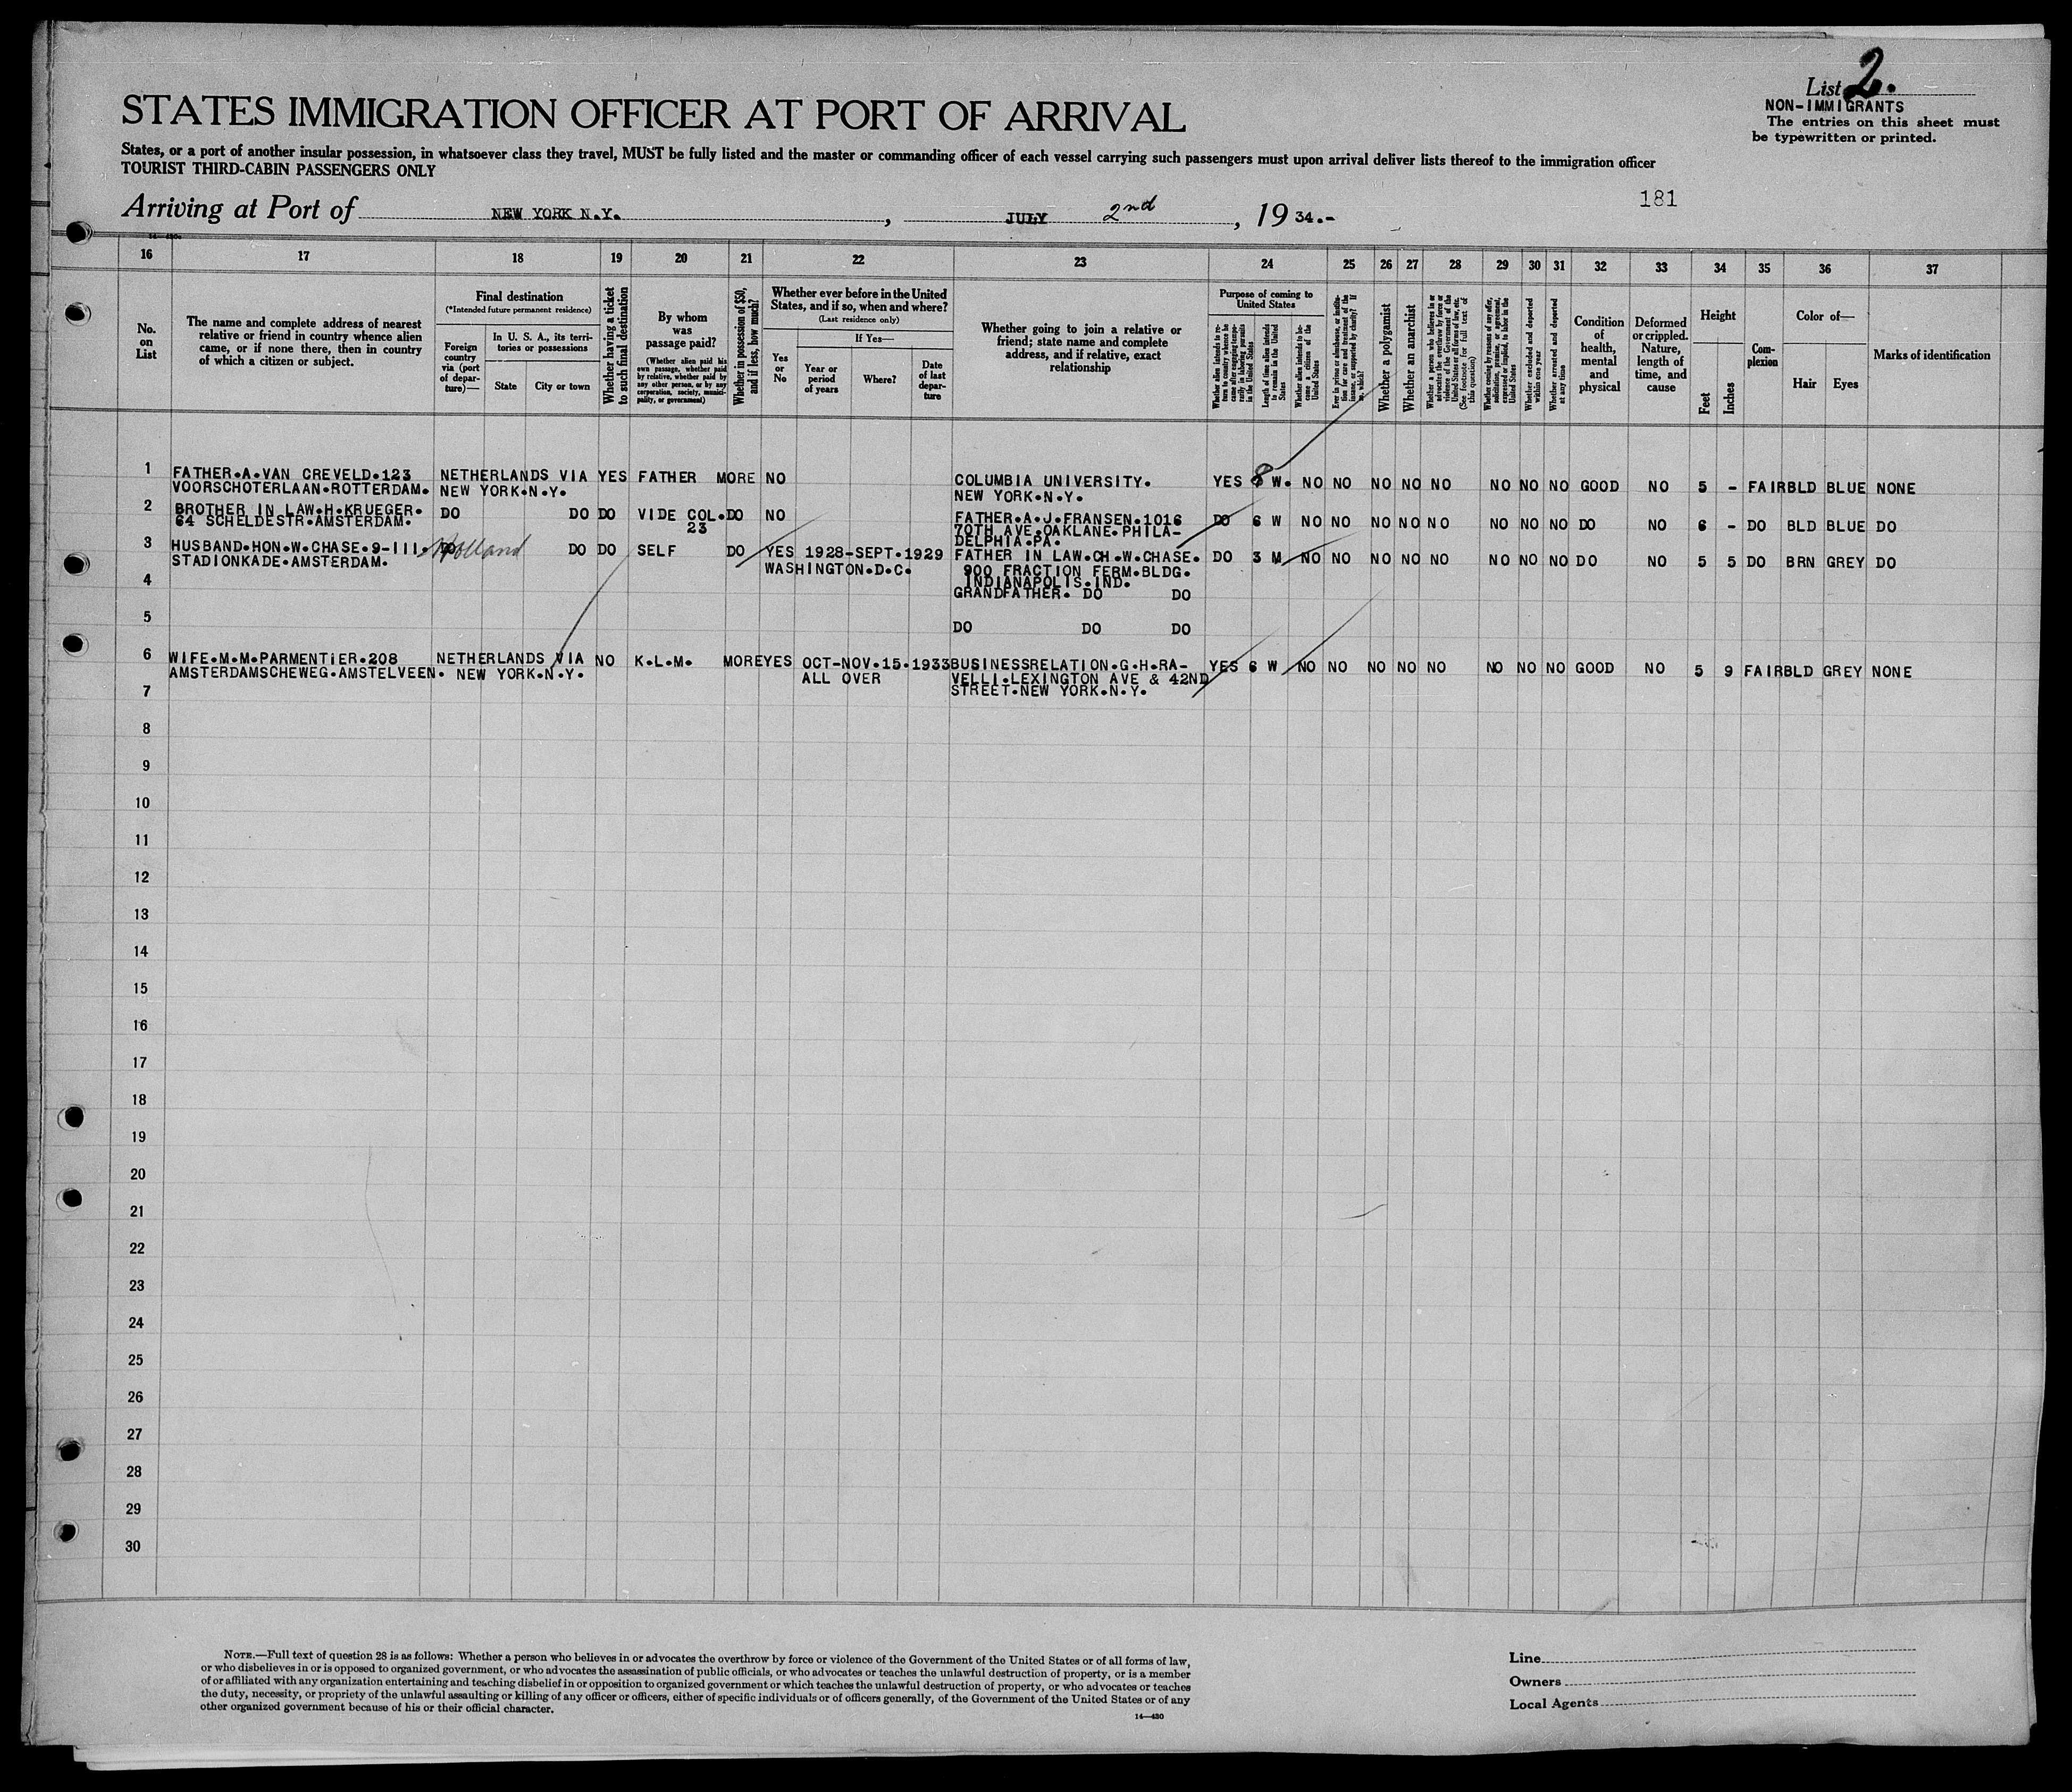 List 2.
NON-IMMIGRANTS
The entries on this sheet must
be typewritten or printed.
STATES IMMIGRATION OFFICER AT PORT OF ARRIVAL
States, or a port of another insular possession, in whatsoever class they travel, MUST be fully listed and the master or commanding officer of each vessel carrying such passengers must upon arrival deliver lists thereof to the immigration officer
TOURIST THIRD-CABIN PASSENGERS ONLY
181
Arriving at Port of NEW YORK N.Y., JULY 2nd, 19 34.-
16 17 18 19 20 21 22 23 24 25 26 27 28 29 30 31 32 33 34 35 36 37
No.
on
List
The name and complete address of nearest
relative or friend in country whence alien
came, or if none there, then in country
of which a citizen or subject.
Final destination
(*Intended future permanent residence)
Foreign
country
via (port
of depar-
ture)—
In U. S. A., its terri-
tories or possessions
State
City or town
Whether having a ticket
to such final destination
By whom
was
passage paid?
(Whether alien paid his
own passage, whether paid
by relative, whether paid by
any other person, or by any
corporation, society, munici-
pality, or government)
Whether in possession of $50,
and if less, how much?
Whether ever before in the United
States, and if so, when and where?
(Last residence only)
Yes
or
No
If Yes—
Year or
period
of years
Where?
Date
of last
depar-
ture
Whether going to join a relative or
friend; state name and complete
address, and if relative, exact
relationship
Purpose of coming to
United States
Whether alien intends to re-
turn to country whence he
came after engaging tempo-
rarily in laboring pursuits
in the United States
Length of time alien intends
to remain in the United
States
Whether alien intends to be-
come a citizen of the
United States
Ever in prison or almshouse, or institu-
tion for care and treatment of the
insane, or supported by charity? If
so, which?
Whether a polygamist
Whether an anarchist
Whether a person who believes in or
advocates the overthrow by force or
violence of the Government of the
United States or all forms of law, etc.
(See footnote for full text of
this question)
Whether coming by reasons of any offer,
solicitation, promise, or agreement,
expressed or implied, to labor in the
United States
Whether excluded and deported
within one year
Whether arrested and deported
at any time
Condition
of
health,
mental
and
physical
Deformed
or crippled.
Nature,
length of
time, and
cause
Height
Feet
Inches
Com-
plexion
Color of—
Hair
Eyes
Marks of identification
1 FATHER.A.VAN CREVELD.123 NETHERLANDS VIA YES FATHER MORE NO COLUMBIA UNIVERSITY. YES 8 W. NO NO NO NO NO NO NO NO GOOD NO 5 - FAIR BLD BLUE NONE
VOORSCHOTERLAAN.ROTTERDAM. NEW YORK.N.Y. NEW YORK.N.Y.
2 BROTHER IN LAW.H.KRUEGER. DO DO DO VIDE COL. DO NO FATHER.A.J.FRANSEN.1016 DO 6 W NO NO NO NO NO NO NO NO DO NO 6 - DO BLD BLUE DO
64 SCHELDESTR.AMSTERDAM. 23 70TH AVE.OAKLANE.PHILA-
DELPHIA.PA.
3 HUSBAND.HON.W.CHASE.9-III. Holland DO DO SELF DO YES 1928-SEPT.1929 FATHER IN LAW.CH.W.CHASE. DO 3 M NO NO NO NO NO NO NO NO DO NO 5 5 DO BRN GREY DO
STADIONKADE.AMSTERDAM. WASHINGTON.D.C. 900 FRACTION FERM.BLDG.
INDIANAPOLIS.IND.
4 GRANDFATHER. DO DO
5 DO DO DO
6 WIFE.M.M.PARMENTIER.208 NETHERLANDS VIA NO K.L.M. MORE YES OCT-NOV.15.1933 BUSINESSRELATION.G.H.RA- YES 6 W NO NO NO NO NO NO NO NO GOOD NO 5 9 FAIR BLD GREY NONE
AMSTERDAMSCHEWEG.AMSTELVEEN. NEW YORK.N.Y. ALL OVER VELLI.LEXINGTON AVE & 42ND
7 STREET.NEW YORK.N.Y.
8
9
10
11
12
13
14
15
16
17
18
19
20
21
22
23
24
25
26
27
28
29
30
NOTE.—Full text of question 28 is as follows: Whether a person who believes in or advocates the overthrow by force or violence of the Government of the United States or of all forms of law,
or who disbelieves in or is opposed to organized government, or who advocates the assassination of public officials, or who advocates or teaches the unlawful destruction of property, or is a member
of or affiliated with any organization entertaining and teaching disbelief in or opposition to organized government or which teaches the unlawful destruction of property, or who advocates or teaches
the duty, necessity, or propriety of the unlawful assaulting or killing of any officer or officers, either of specific individuals or of officers generally, of the Government of the United States or of any
other organized government because of his or their official character.
14—430
Line
Owners
Local Agents